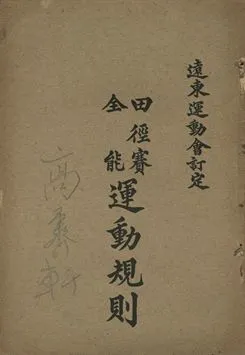 遠東運動會訂定
田徑賽
全能
運動規則